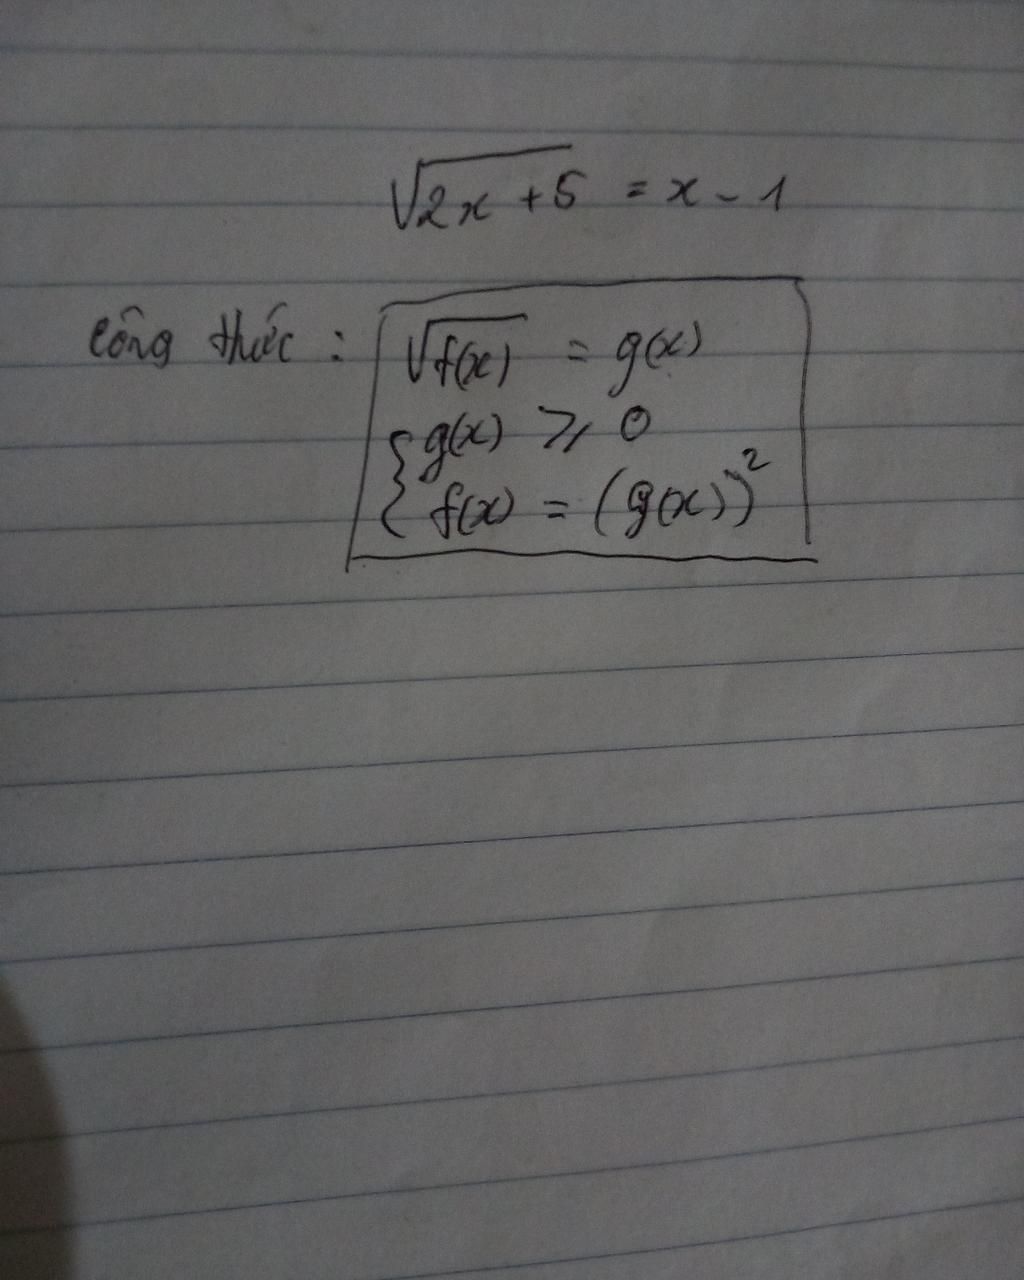 √(2x + 5) = x - 1
Công thức : √(f(x)) = g(x)
{ g(x) ⩾ 0
f(x) = (g(x))²